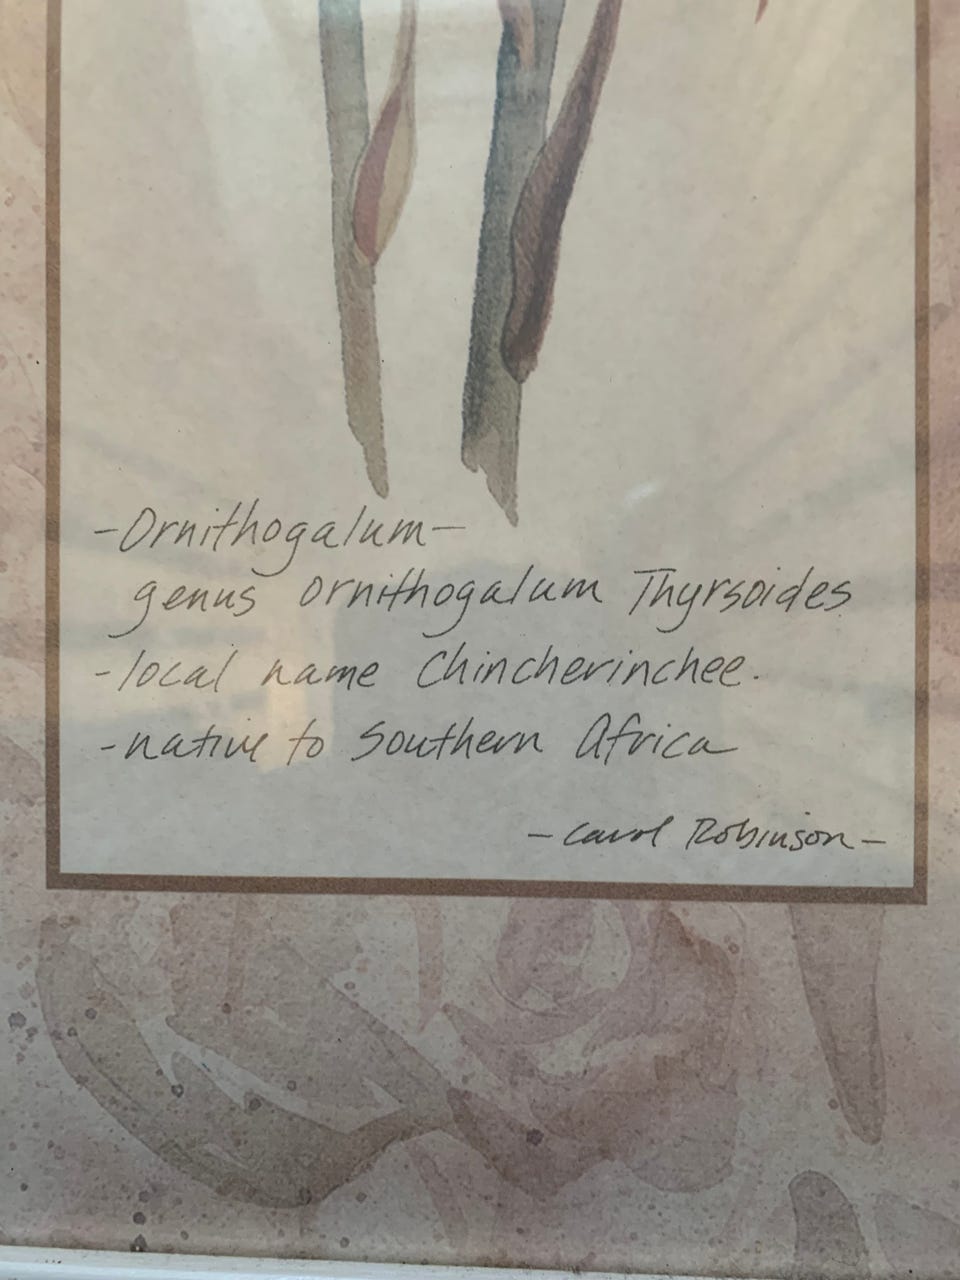 -Ornithogalum-
genus ornithogalum Thyrsoides
-local name Chincherinchee.
-native to Southern Africa
-Carol Robinson-